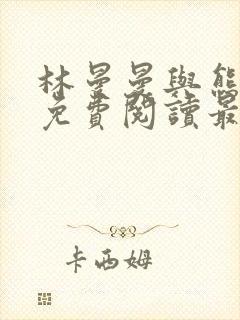 林曼曼與熊
免費閱讀最
卡西姆